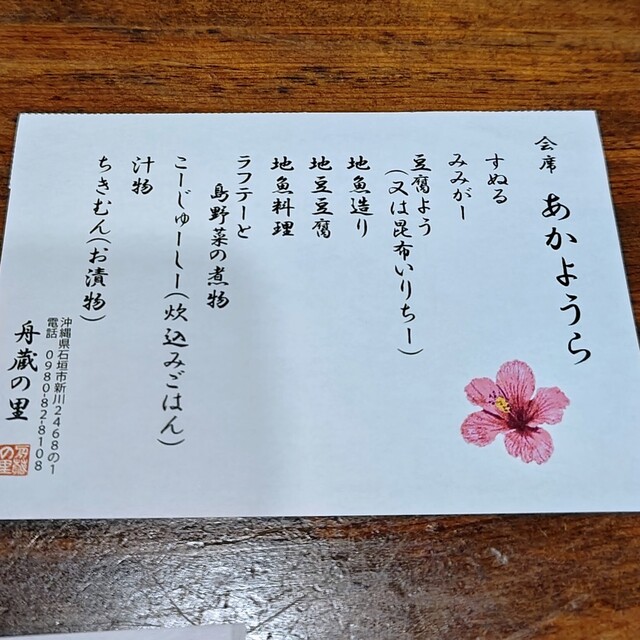 会席 あかようら
すぬる
みみがー
豆腐よう
(又は昆布いりちー)
地魚造り
地豆豆腐
地魚料理
ラフテーと
島野菜の煮物
こーじゅーしー(炊込みごはん)
汁物
ちきむん(お漬物)
沖縄県石垣市新川2468の1
電話 0980-82-8108
舟蔵の里